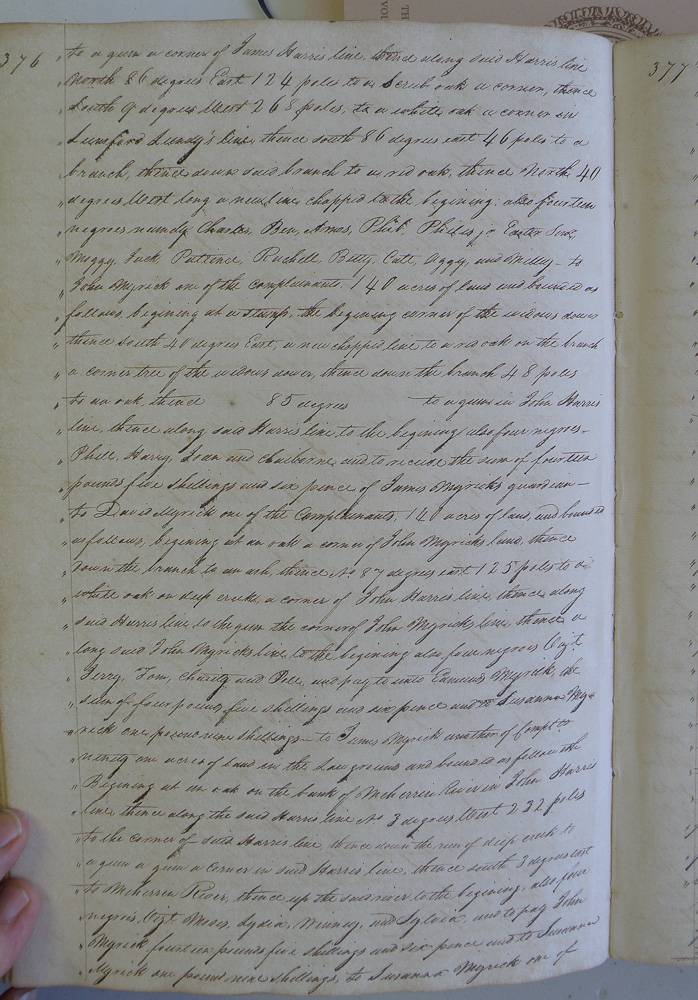 376
377
to a gum a corner of James Harris line, thence along said Harris line
North 86 degrees East 124 poles to a Scrub oak a corner, thence
South 9 degrees West 268 poles, to a white oak a corner in
Lundy's line, thence south 86 degrees east 46 poles to a
branch, thence down said branch to a red oak, thence North 40
degrees West long a new line chopped to the begining; also fourteen
negroes namely Charles, Ben, Amos, Phib, Phillis, Easter
Moggy, Jack Patience, Rachell Betty, Catt, Aggy, and Milley - to
John Myrick one of the complainants, 140 acres of land and bounded as
follows, begining at a stump, the begining corner of the widows dower
thence south 40 degrees East, a new chopped line to a red oak on the branch
a corner tree of the widows dower, thence down the branch 48 poles
to an oak, thence 85 degrees to a gum in John Harris
line, thence along said Harris line to the begining also four negroes -
Phill, Harry, Joan and Claiborne, and to receive the sum of fourteen
pounds five shillings and six pence of James Myricks guardian -
to David Myrick one of the Complainants, 140 acres of land, and bounded
as follows, begining at an oak a corner of John Myricks land, thence
down the branch to an ash, thence No. 87 degrees east 125 poles to a
white oak on deep creek, a corner of John Harris line, thence along
said Harris line to the gum the corner of John Myricks line, thence a
long said John Myricks line to the begining also four negroes (Viz.t
Terry, Tom, Charity and Poll, and pay to unto Edmund Myrick, the
sum of four pounds five shillings and six pence and to Susanna My=
rick one pound nine shillings - to James Myrick another of Compl.ts
ninety one acres of land in the Low grounds and bounded as follow the
Begining at an oak on the bank of Meherrin River in John Harris
line thence along the said Harris line No. 3 degrees West 232 poles
to the corner of said Harris line thence down the run of deep creek to
a gum a gum a corner in said Harris line, thence south 3 degrees east
to Meherrin River, thence up the said river to the begining, also, four
negroes, Viz.t Moses, Lydia, Winney, and Sylvia, and to pay John
Myrick fourteen pounds five shillings and six pence and to Susanna
Myrick one pound nine shillings, to Susanna Myrick one of